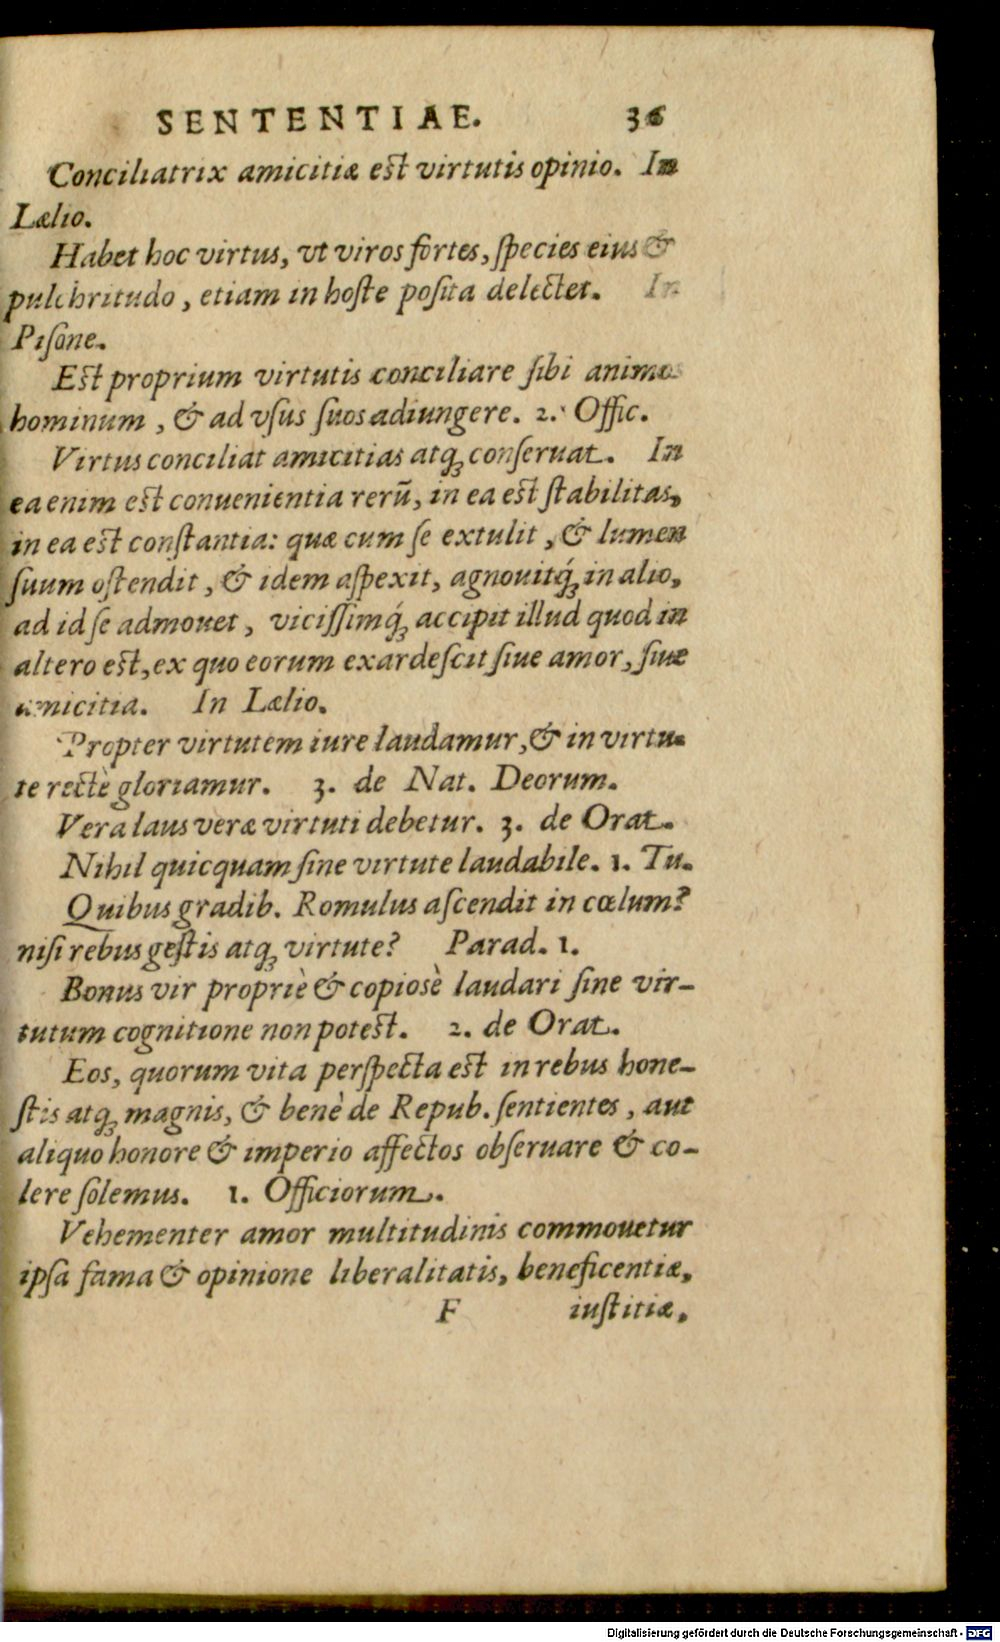 SENTENTIAE. 36
Conciliatrix amicitiæ est virtutis opinio. In
Lælio.
Habet hoc virtus, vt viros fortes, ſpecies eius &
pulchritudo, etiam in hoſte poſita delectet. In
Piſone.
Est proprium virtutis conciliare ſibi animos
hominum, & ad vſus ſuos adiungere. 2. Offic.
Virtus conciliat amicitias atq; conſeruat. In
ea enim est conuenientia rerū, in ea est ſtabilitas,
in ea est conſtantia: quæ cum ſe extulit, & lumen
ſuum oſtendit, & idem aſpexit, agnouitq́; in alio,
ad id ſe admouet, viciſſimq́; accipit illud quod in
altero est, ex quo eorum exardeſcit ſiue amor, ſiue
amicitia. In Lælio.
Propter virtutem iure laudamur, & in virtu-
te rectè gloriamur. 3. de Nat. Deorum.
Vera laus veræ virtuti debetur. 3. de Orat.
Nihil quicquam ſine virtute laudabile. 1. Tu.
Quibus gradib. Romulus aſcendit in cœlum?
niſi rebus geſtis atq; virtute? Parad. 1.
Bonus vir propriè & copiosè laudari ſine vir-
tutum cognitione non potest. 2. de Orat.
Eos, quorum vita perſpecta est in rebus hone-
ſtis atq; magnis, & benè de Repub. ſentientes, aut
aliquo honore & imperio affectos obſeruare & co-
lere ſolemus. 1. Officiorum.
Vehementer amor multitudinis commouetur
ipſa fama & opinione liberalitatis, beneficentiæ,
F iuſtitiæ,
Digitalisierung gefördert durch die Deutsche Forschungsgemeinschaft - DFG